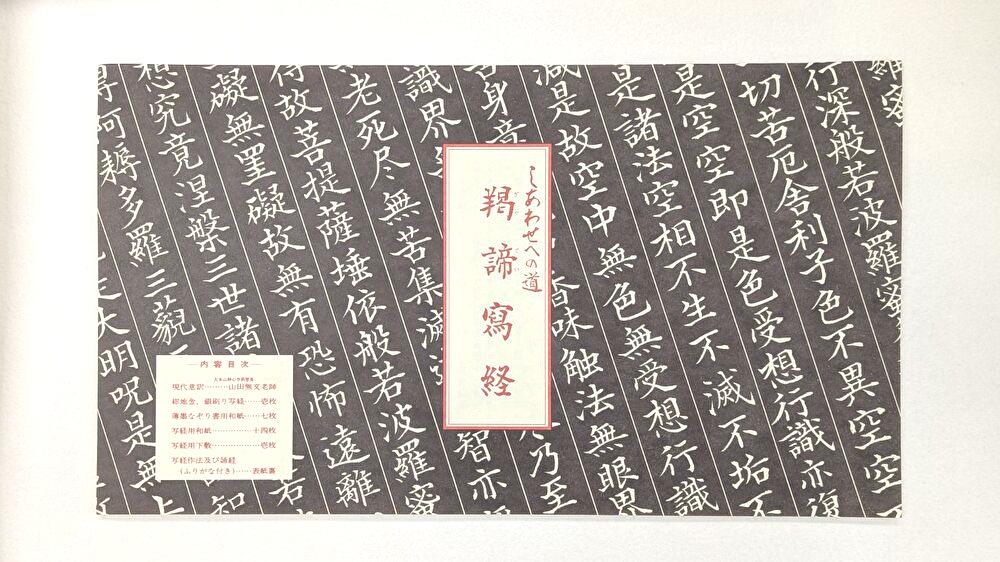 羅蜜
行深般若波羅蜜
切苦厄舎利子色不異空空
是空空即是色受想行識亦復
是諸法空相不生不滅不垢不
減是故空中無色無受想行識
舌身意
香味触法無眼界
識界
乃至
老死尽無苦集滅
智亦
故菩提薩埵依般若波羅蜜
礙無罣礙故無有恐怖遠離
想究竟涅槃三世諸
若
得阿耨多羅三藐
知
大明呪是無上
しあわせへの道
羯諦寫経
内容目次
現代意訳………山田無文老師
紺地金、銀刷り写経……壱枚
薄墨なぞり書用和紙……七枚
写経用和紙…………十四枚
写経用下敷………………壱枚
写経作法及び誦経
(ふりがな付き)……表紙裏